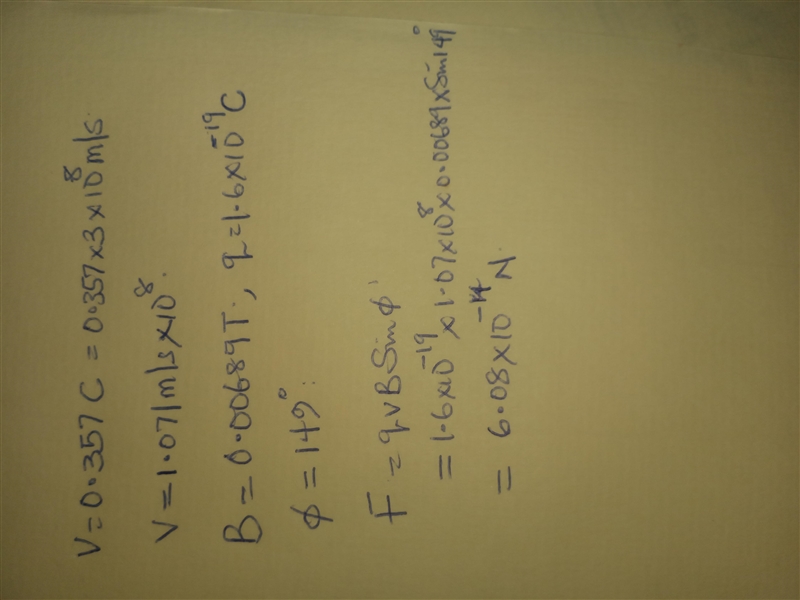 V = 0.357 C = 0.357 x 3 x 10⁸ m/s.
V = 1.071 m/s x 10⁸.
B = 0.00689 T. , q = 1.6 x 10⁻¹⁹ C
ϕ = 149°.
F = qVB Sin ϕ
= 1.6 x 10⁻¹⁹ x 1.07 x 10⁸ x 0.00689 x Sin 149°
= 6.08 x 10⁻¹⁴ N.